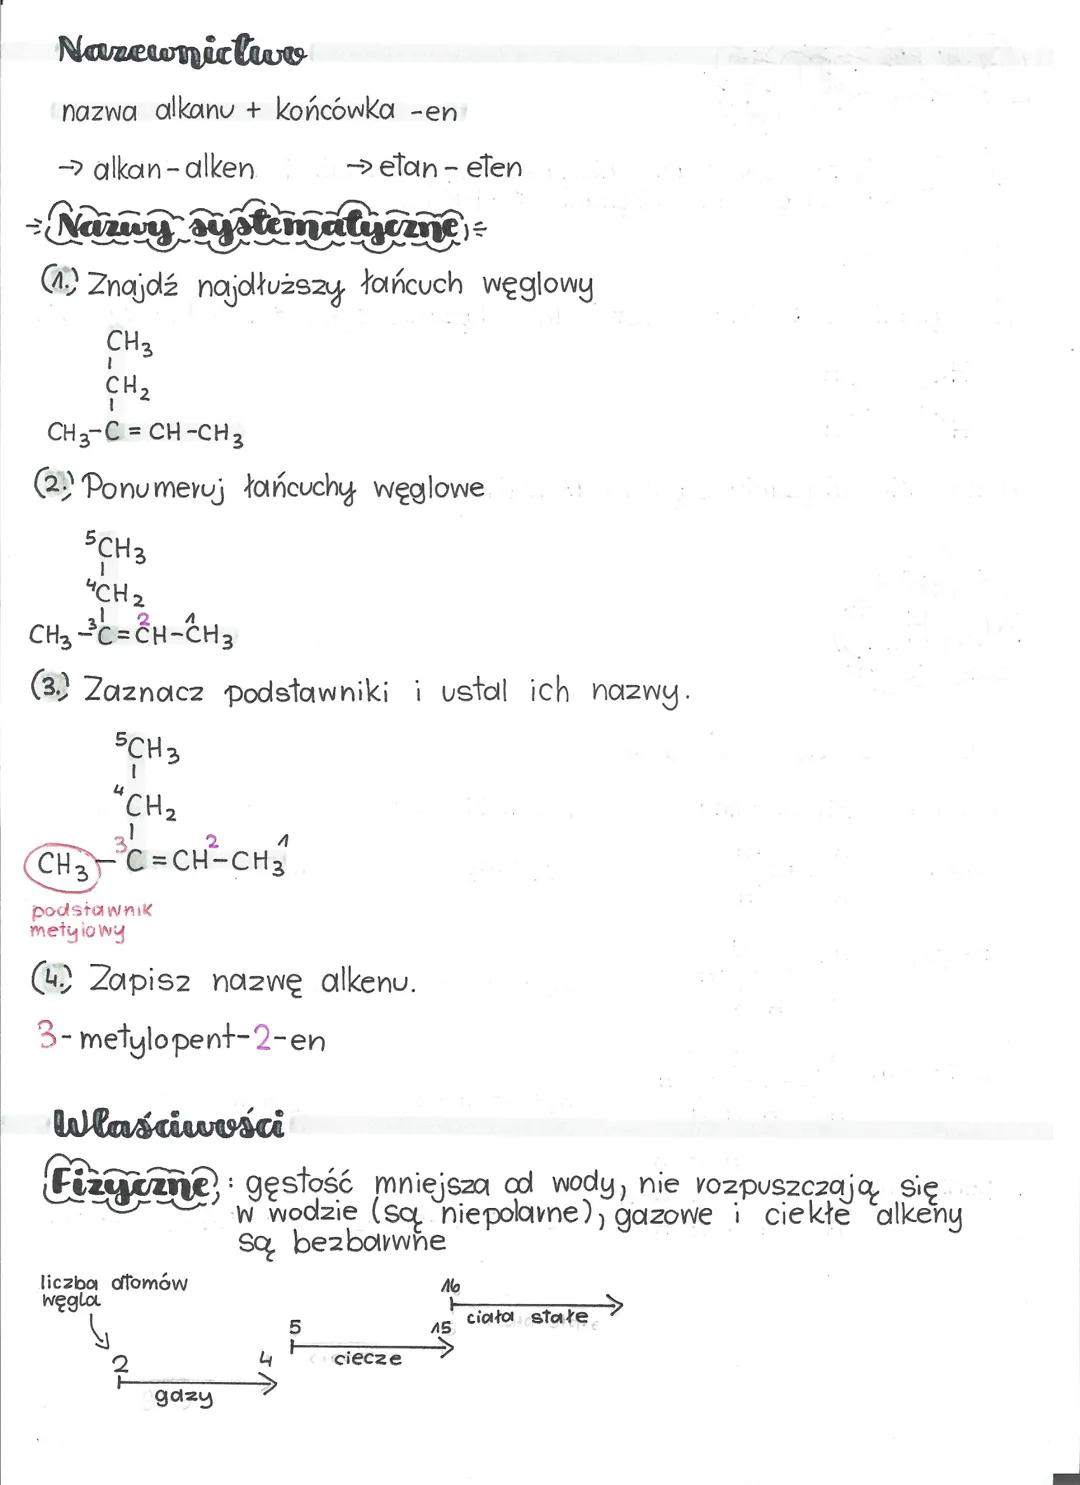 Nazewnictwo
nazwa alkanu + końcówka -en
→ alkan - alken → etan - eten
Nazwy systematyczne
1. Znajdź najdłuższy łańcuch węglowy
CH3
CH2
CH3-C = CH-CH3
2. Ponumeruj łańcuchy węglowe
5CH3
4CH2
CH3-3C=2CH-1CH3
3. Zaznacz podstawniki i ustal ich nazwy.
5CH3
4CH2
CH3-3C=CH2-CH31
podstawnik
metylowy
4. Zapisz nazwę alkenu.
3-metylopent-2-en
Właściwości
Fizyczne: gęstość mniejsza od wody, nie rozpuszczają się
w wodzie (są niepolarne), gazowe i ciekłe alkeny
są bezbarwne
liczba atomów 16
węgla
ciała stałe
5 15
ciecze
2 4
gazy